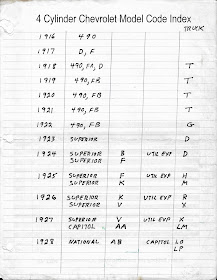 4 Cylinder Chevrolet Model Code Index
TRUCK
1916 490
1917 D, F
1918 490, FA, D T
1919 490, FB T
1920 490, FB T
1921 490, FB T
1922 490, FB G
1923 SUPERIOR D
1924 SUPERIOR B UTIL EXP D
SUPERIOR F
1925 SUPERIOR F UTIL EXP H
SUPERIOR K M
1926 SUPERIOR K UTIL EXP R
SUPERIOR V X
1927 SUPERIOR V UTIL EXP X
CAPITOL AA LM
1928 NATIONAL AB CAPITOL LO
LP